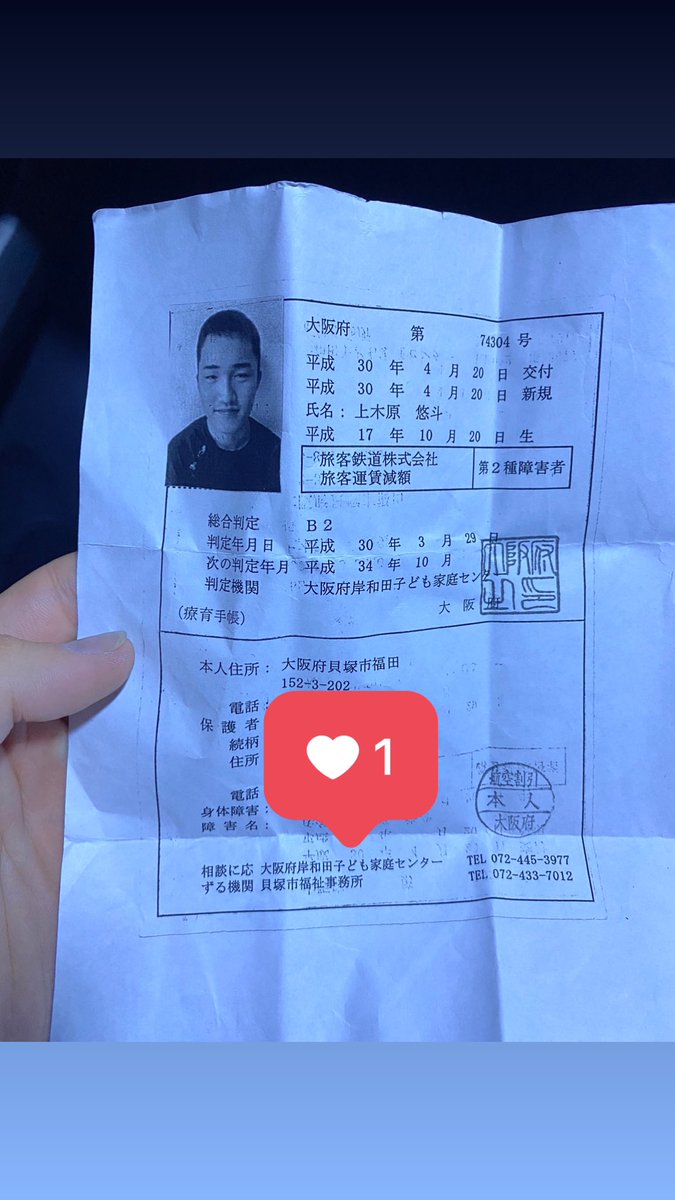 大阪府 第 74304 号
平成 30 年 4 月 20 日 交付
平成 30 年 4 月 20 日 新規
氏名：上木原 悠斗
平成 17 年 10 月 20 日 生
旅客鉄道株式会社
旅客運賃減額
第２種障害者
総合判定 Ｂ２
判定年月日 平成 30 年 3 月 29 日
次の判定年月 平成 34 年 10 月
判定機関 大阪府岸和田子ども家庭センタ
（療育手帳）
大阪府
本人住所：大阪府貝塚市福田
152-3-202
電話：
保護者
続柄
住所
1
電話
身体障害：
障害名：
航空割引
本人
大阪府
相談に応 大阪府岸和田子ども家庭センター TEL 072-445-3977
ずる機関 貝塚市福祉事務所 TEL 072-433-7012